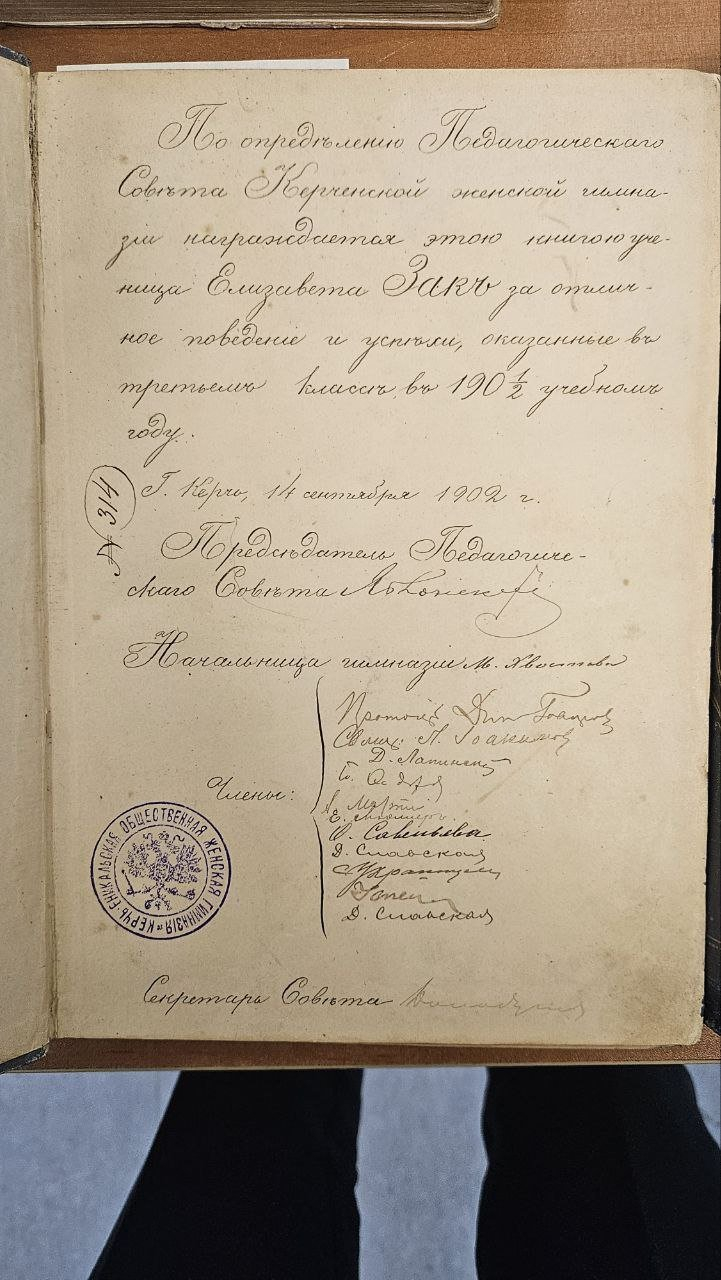 По опредѣленію Педагогическаго
Совѣта Керченской женской гимна-
зіи награждается этою книгою уче-
ница Елизавета Закъ за отлич-
ное поведеніе и успѣхи, оказанные въ
третьемъ классѣ въ 190 1/2 учебномъ
году.
Г. Керчь, 14 сентября 1902 г.
№ 314
Предсѣдатель Педагогиче-
скаго Совѣта
Начальница гимназіи М. Хвостова
Члены:
Д. Лапинскій
Е.
О. Савельева
Д. Славская
Д. Славская
КЕРЧЬ-ЕНИКАЛЬСКАЯ ОБЩЕСТВЕННАЯ ЖЕНСКАЯ ГИМНАЗІЯ
Секретарь Совѣта